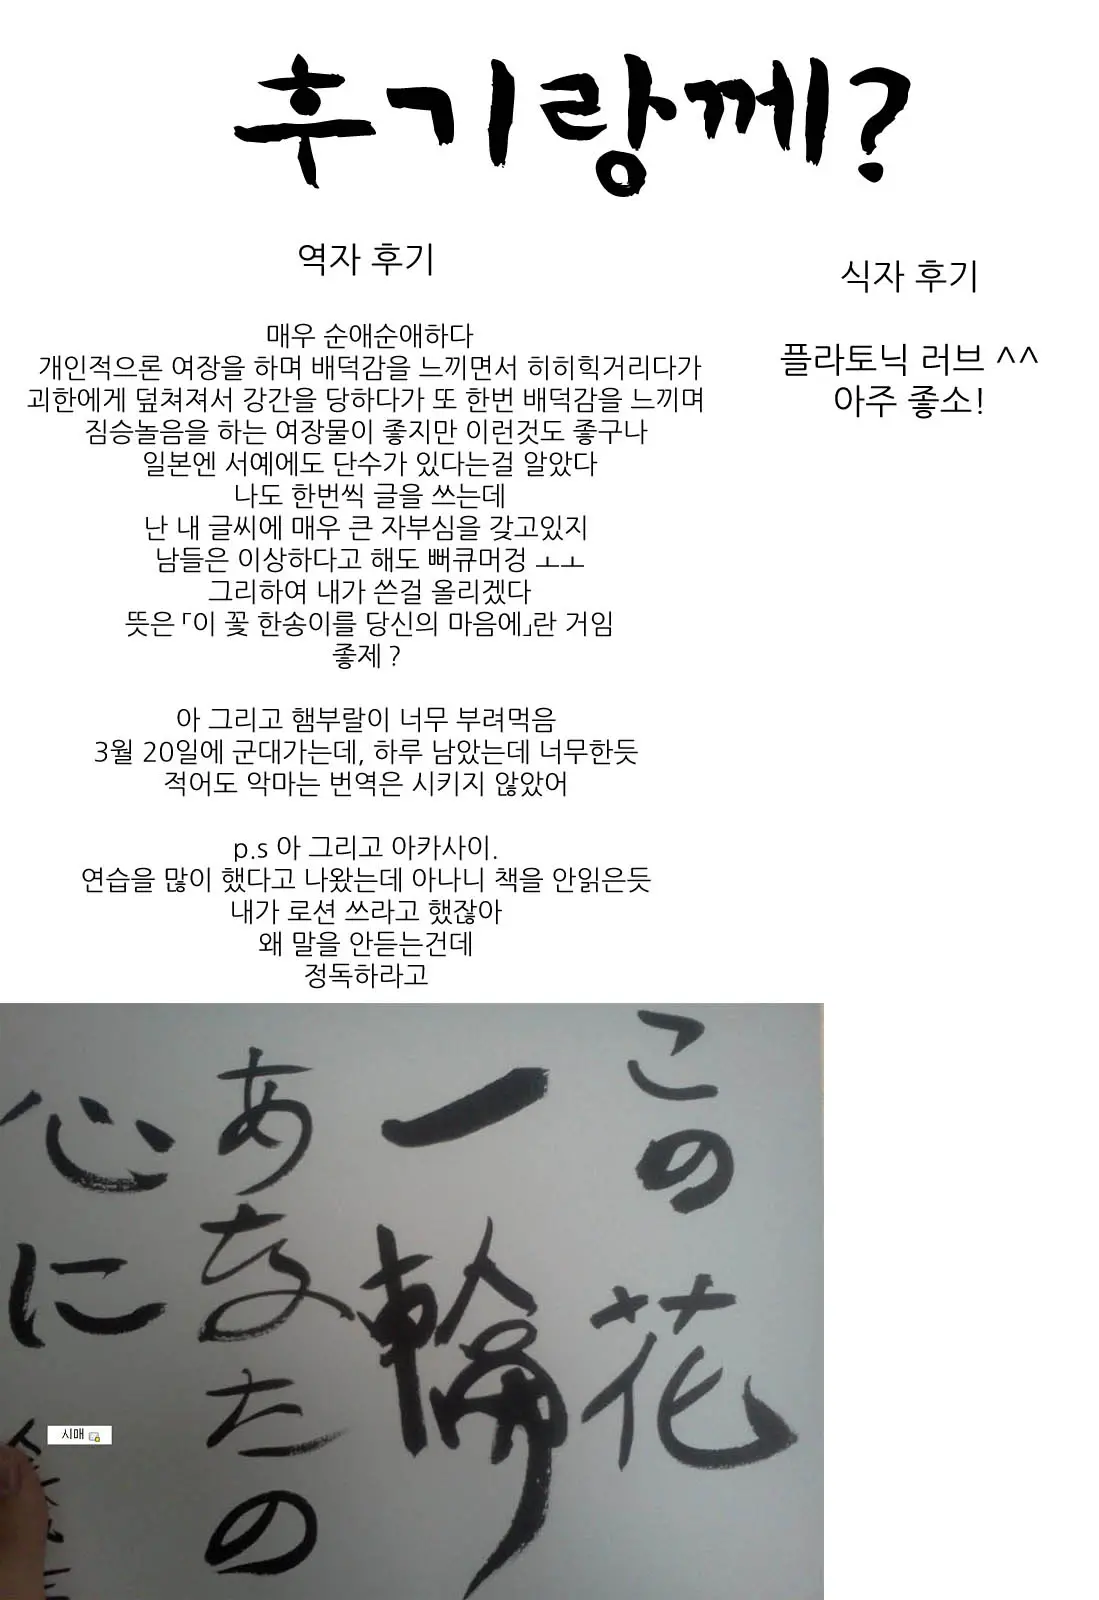 후기랑께?
역자 후기
매우 순애순애하다
개인적으론 여장을 하며 배덕감을 느끼면서 히히힉거리다가
괴한에게 덮쳐져서 강간을 당하다가 또 한번 배덕감을 느끼며
짐승놀음을 하는 여장물이 좋지만 이런것도 좋구나
일본엔 서예에도 단수가 있다는걸 알았다
나도 한번씩 글을 쓰는데
난 내 글씨에 매우 큰 자부심을 갖고있지
남들은 이상하다고 해도 뻐큐머겅 ㅗㅗ
그리하여 내가 쓴걸 올리겠다
뜻은 ｢이 꽃 한송이를 당신의 마음에｣란 거임
좋제 ?
아 그리고 햄부랄이 너무 부려먹음
3월 20일에 군대가는데, 하루 남았는데 너무한듯
적어도 악마는 번역은 시키지 않았어
p.s 아 그리고 아카사이.
연습을 많이 했다고 나왔는데 아나니 책을 안읽은듯
내가 로션 쓰라고 했잖아
왜 말을 안듣는건데
정독하라고
식자 후기
플라토닉 러브 ^^
아주 좋소!
この花
一輪
あなたの
心に
시매